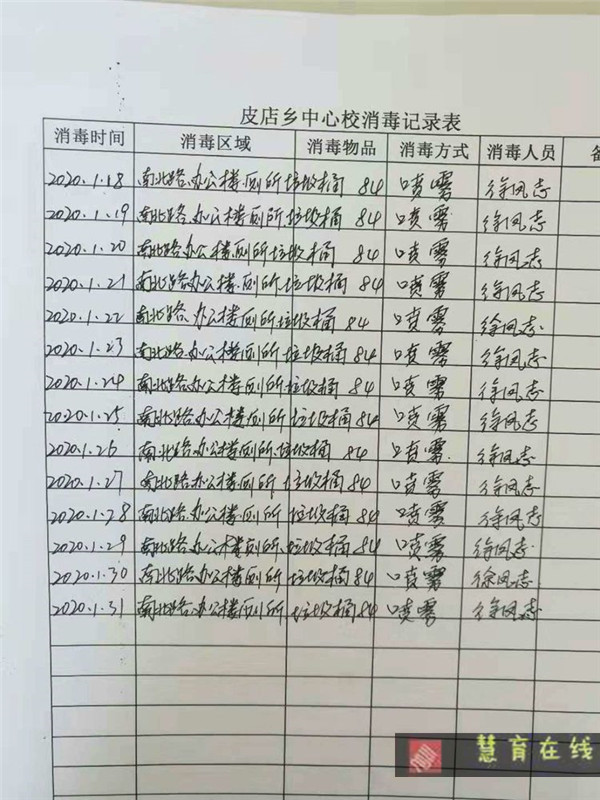 皮店乡中心校消毒记录表
消毒时间 消毒区域 消毒物品 消毒方式 消毒人员 备
2020.1.18 南北路.办公楼.厕所.垃圾桶 84 喷雾 徐凤志
2020.1.19 南北路.办公楼.厕所.垃圾桶 84 喷雾 徐凤志
2020.1.20 南北路.办公楼.厕所.垃圾桶 84 喷雾 徐凤志
2020.1.21 南北路.办公楼.厕所.垃圾桶 84 喷雾 徐凤志
2020.1.22 南北路.办公楼.厕所.垃圾桶 84 喷雾 徐凤志
2020.1.23 南北路.办公楼.厕所.垃圾桶 84 喷雾 徐凤志
2020.1.24 南北路.办公楼.厕所.垃圾桶 84 喷雾 徐凤志
2020.1.25 南北路.办公楼.厕所.垃圾桶 84 喷雾 徐凤志
2020.1.26 南北路.办公楼.厕所.垃圾桶 84 喷雾 徐凤志
2020.1.27 南北路.办公楼.厕所.垃圾桶 84 喷雾 徐凤志
2020.1.28 南北路.办公楼.厕所.垃圾桶 84 喷雾 徐凤志
2020.1.29 南北路.办公楼.厕所.垃圾桶 84 喷雾 徐凤志
2020.1.30 南北路.办公楼.厕所.垃圾桶 84 喷雾 徐凤志
2020.1.31 南北路.办公楼.厕所.垃圾桶 84 喷雾 徐凤志
慧育在线